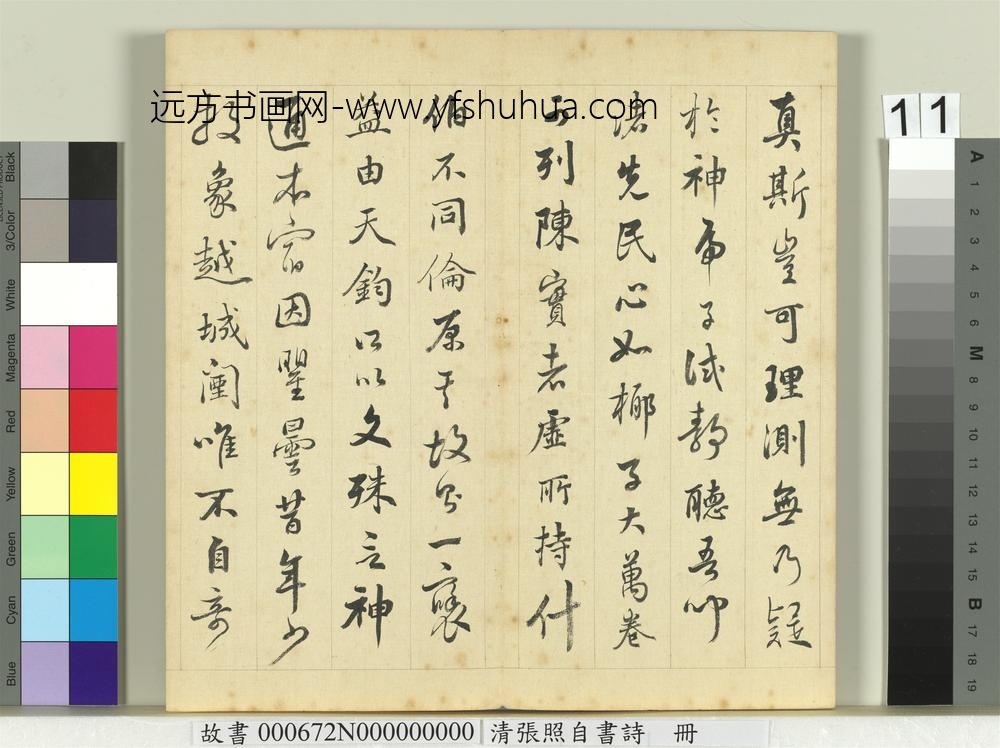 真斯豈可理測無乃疑
於神帝子試靜聽吾
滄先民心如椰子大萬卷
列陳實者虛所持什
伯不同倫原其故只一寱
益由天鈞所以文殊之神
通本宿因瞿曇昔年少
象越城闉唯不自奇
远方书画网-www.yfshuhua.com
11
A 1 2 3 4 5 6 M 8 9 10 11 12 13 14 15 B 17 18 19
Black
3/Color
White
Magenta
Red
Yellow
Green
Cyan
Blue
故書 000672N000000000 清張照自書詩 冊